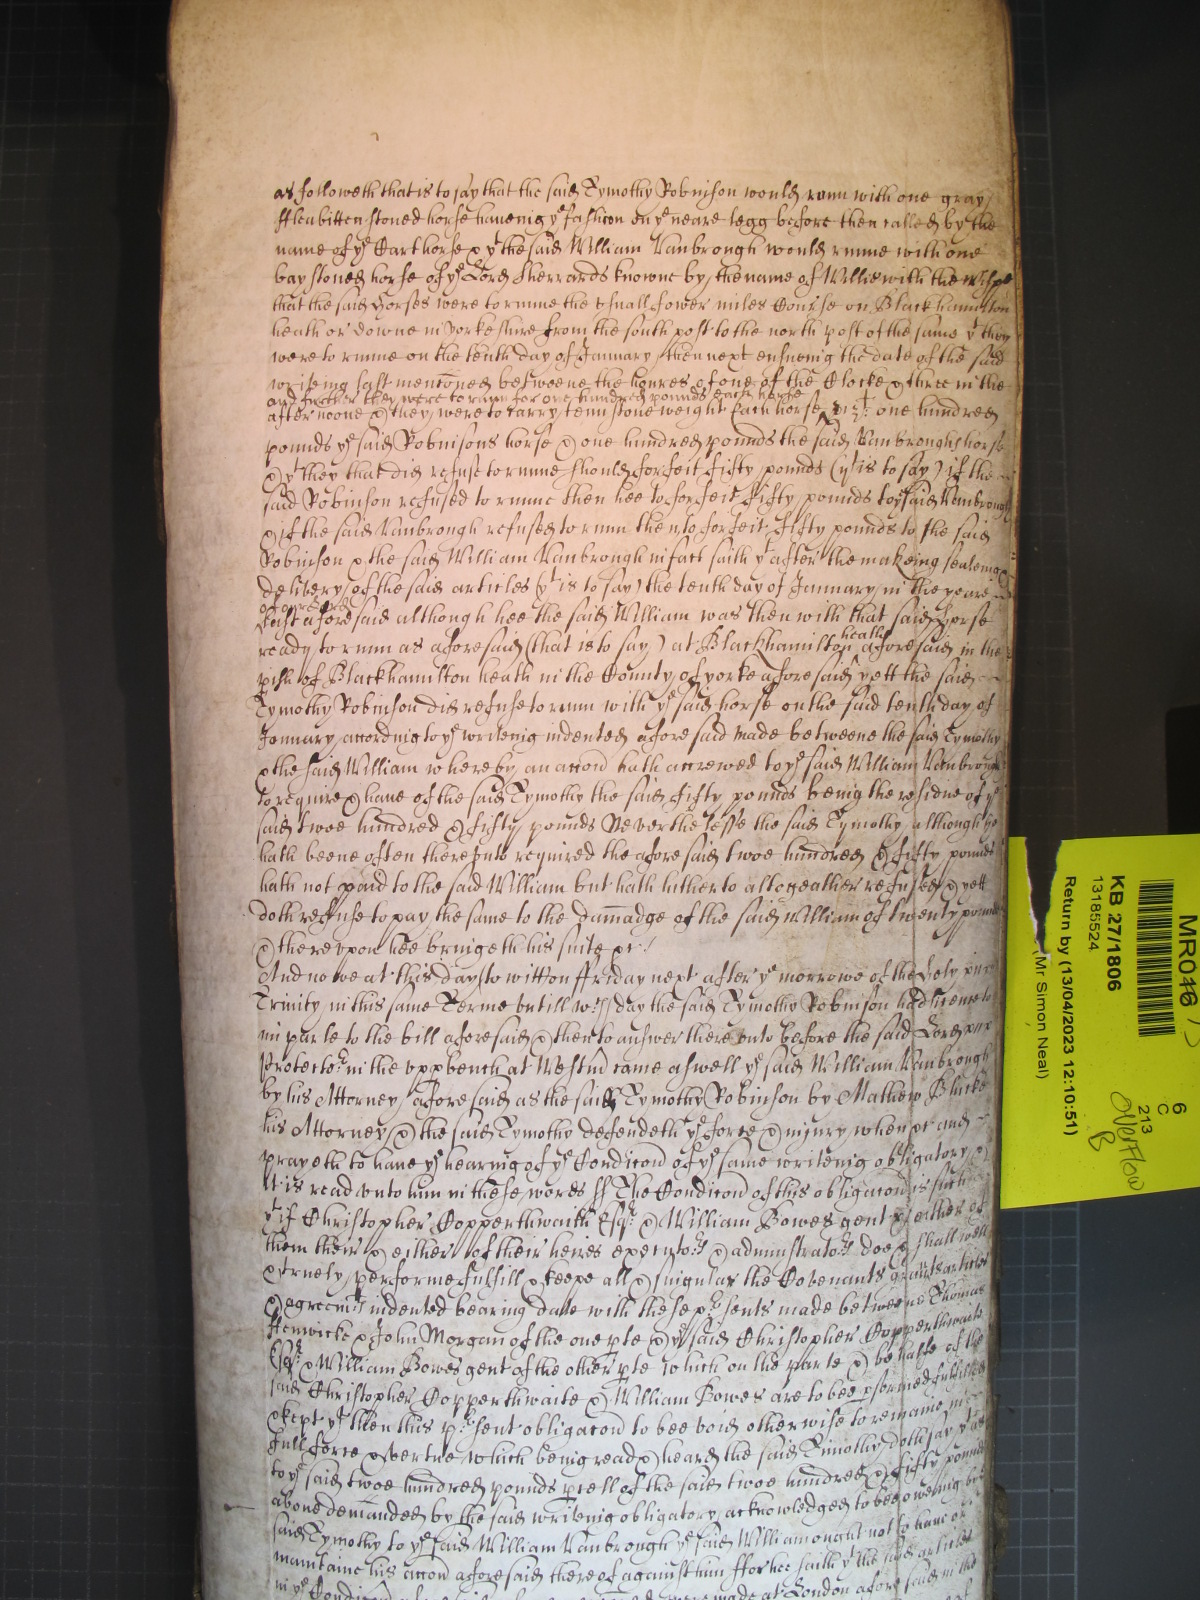 as followeth that is to say that the said Tymothy Robinson would runn with one gray
ffleabitten stoned horse haueing ye fashion on ye neare legg before then called by the
name of ye Cart horse & yt the said William Vanbrough would runne with one
bay stoned horse of ye Lord Sherrards knowne by the name of Willie with the
that the said horses were to runne the small fower miles Course on Blackhamilton
heath or downe in Yorkeshire from the south post to the north post of the same yt they
were to runne on the tenth day of January then next ensueing the date of the said
writeing last mentoned betweene the houres of one of the Clocke & three in the
and further they were to runn for one hundred pounds each horse
after noone & they were to carry tenn stone weight Each horse vizt one hundred
pounds ye said Robinsons horse & one hundred pounds the said Vanbroughs horse
& yt they that did refuse to runne should forfeit fifty pounds (yt is to say) if the
said Robinson refused to runne then hee to forfeit fifty pounds to ye said Vanbrough
& if the said Vanbrough refused to runn then to forfeit fifty pounds to the said
Robinson & the said William Vanbrough in fact saith yt after the makeing sealeing &
delivery of the said articles (yt is to say) the tenth day of January in the yeare
last aforesaid although hee the said William was then with that said horse
ready to runn as aforesaid (that is to say) at Blackhamilton heath aforesaid in the
pish of Blackhamilton heath in the County of yorke aforesaid yett the said
Tymothy Robinson did refuse to runn with ye said horse on the said tenth day of
January according to ye writeing indented aforesaid made betweene the said Tymothy
& the said William whereby an accon hath accrewed to ye said William Vanbrough
to require & haue of the said Tymothy the said fifty pounds being the residue of ye
said twoe hundred & fifty pounds Neverthelesse the said Tymothy although he
hath beene often thereunto required the aforesaid twoe hundred & fifty pounds
hath not paid to the said William but hath hitherto altogeather refused & yett
doth refuse to pay the same to the damadge of the said William of twenty pounds
& therevpon hee bringeth his suite &c
And nowe at this day to witt on ffriday next after ye morrowe of the holy
Trinity in this same Terme vntill wch day the said Tymothy Robinson had licence to
imparle to the bill aforesaid & then to answer therevnto before the said Lord
Protector in the vpp bench at Westm came aswell ye said William Vanbrough
by his Attorney aforesaid as the said Tymothy Robinson by Mathew Blucke
his Attorney & the said Tymothy defendeth ye force & injury when &c and
prayeth to haue ye hearing of ye Condicon of ye same writeing obligatory &
it is read vnto him in these words ss The Condicon of this obligacon is such
yt if Christopher Copperthwaith Esqr & William Bowes gent & either of
them their & either of their heires executors & administrators doe & shall well
& truely performe fulfill & keepe all & singular the Covenants graunts articles
& agreemts indented bearing date with these presents made betweene Thomas
ffenwicke & John Morgan of the one pte & ye said Christopher Copperthwaite
Esqr & William Bowes gent of the other pte which on the parte & behalfe of the
said Christopher Copperthwaite & William Bowes are to bee pformed fulfilled
& kept yt then this present obligacon to bee void otherwise to remaine in
full force & vertue which being read & heard the said Timothy doth say yt as
to ye said twoe hundred pounds pcell of the said twoe hundred & fifty pounds
aboue demanded by the said writeing obligatory acknowledged to bee oweing by
said Tymothy to ye said William Vanbrough ye said William ought not to haue or
maintaine his accon aforesaid thereof against him ffor hee saith yt the said articles
in ye Condicon made at London aforesaid in the
MR046
KB 27/1806
13185524
Return by (13/04/2023 12:10:51)
(Mr Simon Neal)
6
C
213
Overflow
B